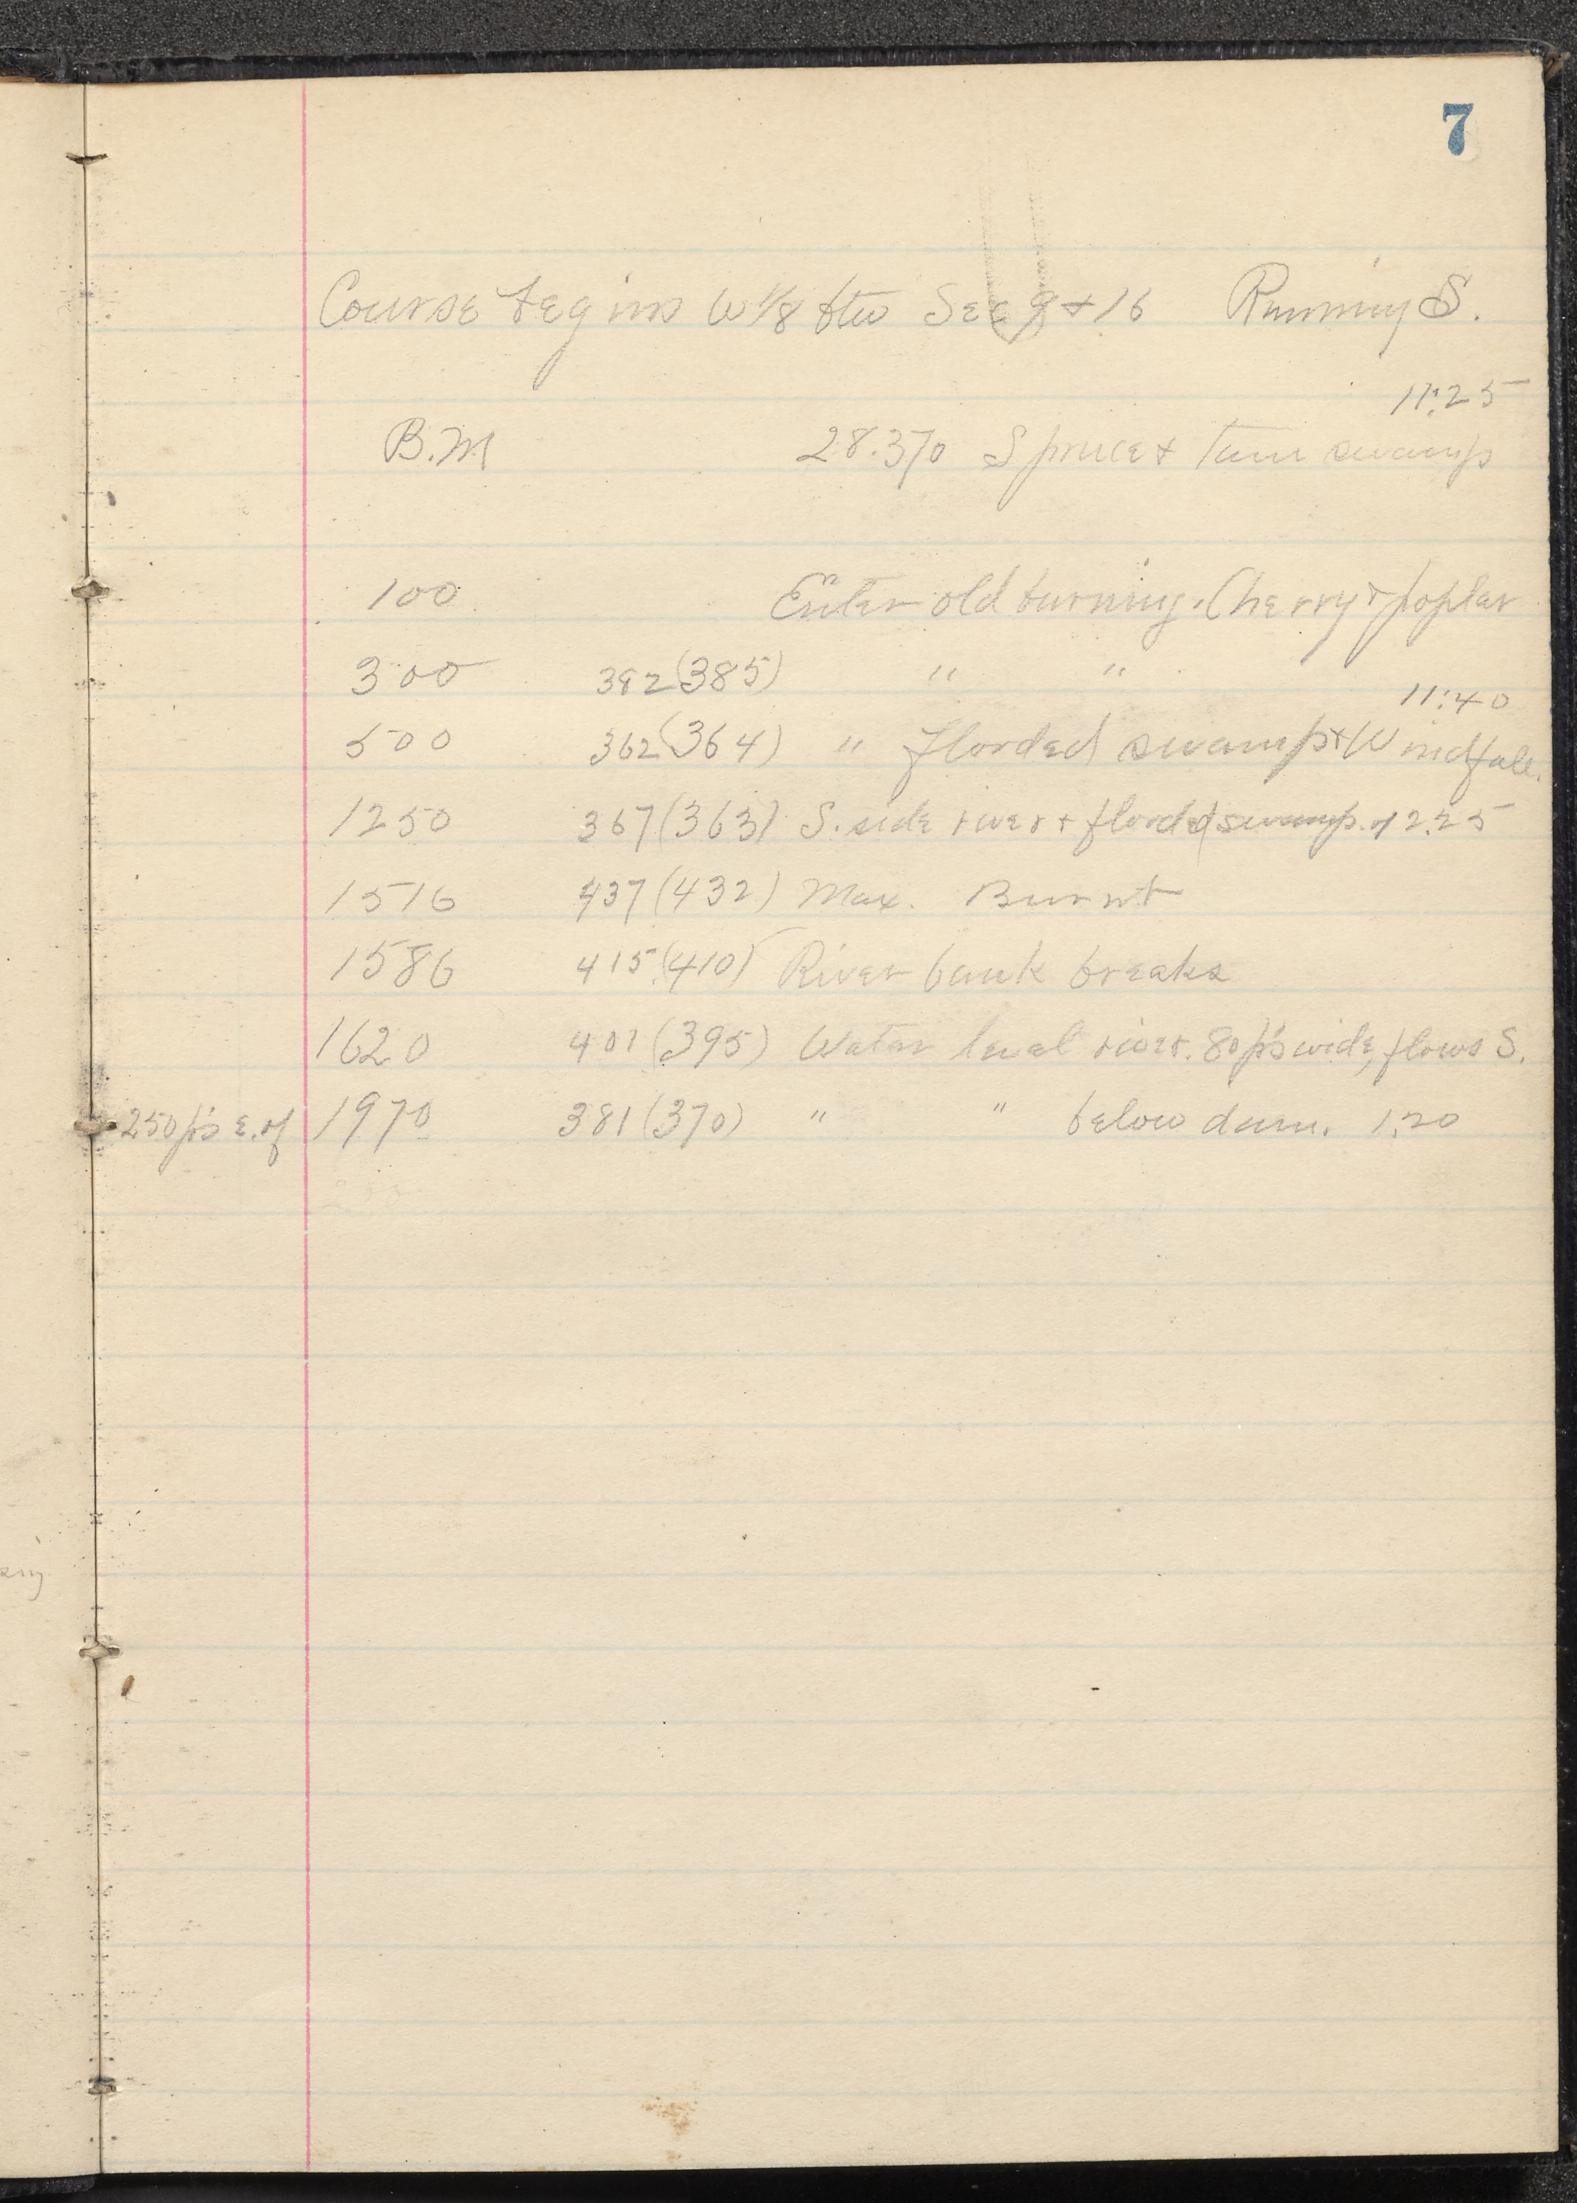 7
Course begins W 1/8 btw Sec 9 + 16 Running S.
11:25
B.M 28.370 Spruce + tam swamp
100 Enter old burning. Cherry + poplar
300 382 (385) " "
11:40
500 362 (364) " flooded swamp + Windfall.
1250 367 (363) S. side river + flooded swamp. 12.25
1516 437 (432) Max. Burnt
1586 415 (410) River bank breaks
1620 401 (395) Water level river. 80 p's wide, flows S.
250 p's E. of 1970 381 (370) " " below dam. 1.20